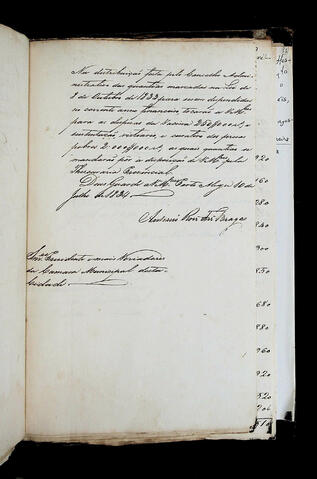 Na distribuição feita pelo Conselho Admi-
nistrativo das quantias marcadas na Lei de
8 de Outubro de 1833 para serem dispendidas
no corrente anno financeiro tocarão a V.Mces
para as despezas da Vaccina 250$000 rs, e
sustentação, vestuario, e curativo dos presos
pobres 2:000$000 rs, as quaes quantias se
mandarão por a disposição de V.Mces pela
Thesouraria Provincial.
Deos Guarde a V.Mces Porto Alegre 10 de
Julho de 1834.
Antonio Roiz Frz Braga
Snrs Presidente e mais Vereadores
da Camara Municipal desta
Cidade.
920
080
840
300
850
680
880
960
920
520
206